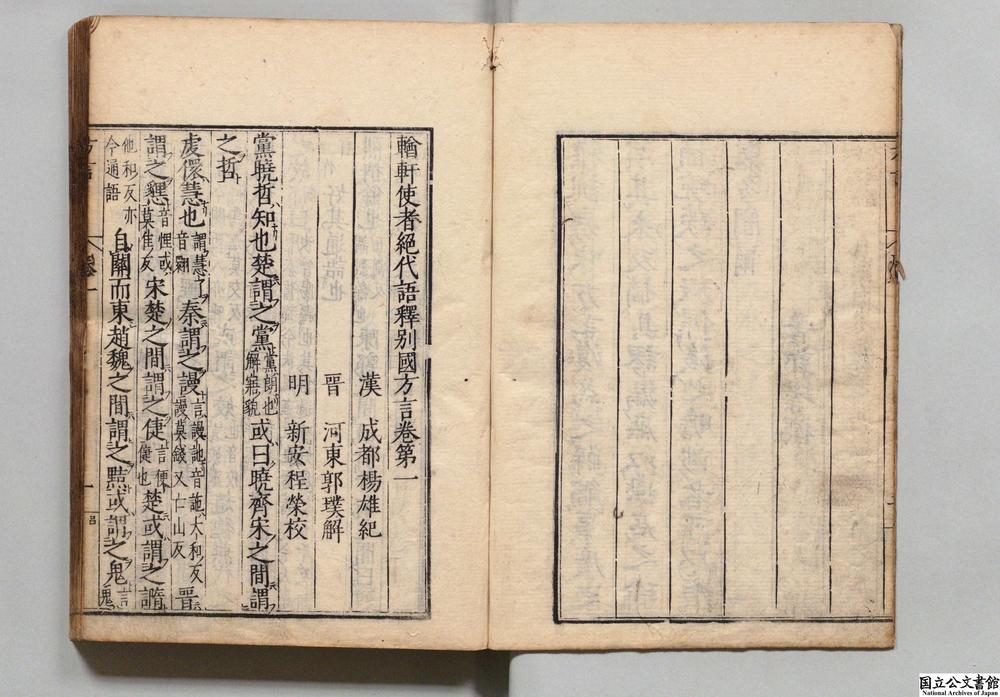 輶軒使者絕代語釋別國方言卷第一
漢　成都楊雄紀
晉　河東郭璞解
明　新安程榮校
黨曉哲知也楚謂之黨黨朗也解寤貌或曰曉齊宋之間謂
之哲
虔儇慧也謂慧了音翾秦謂之謾言謾訑音莫錢又亡山反訑大和反晉
謂之㦟音悝或莫佳反宋楚之間謂之倢言便倢也楚或謂之䜏
他和反亦今通語自關而東趙魏之間謂之黠或謂之鬼言鬼
卷一
国立公文書館
National Archives of Japan